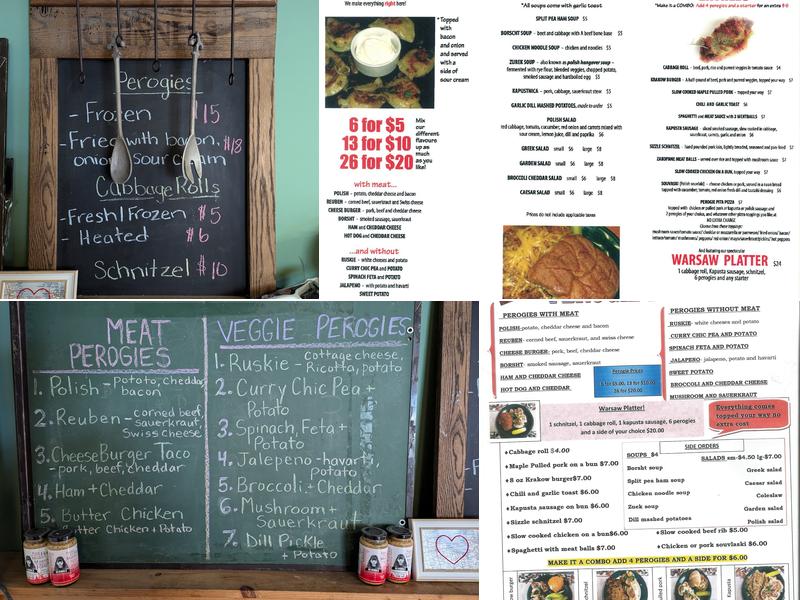 Perogies
- Frozen $15
- Fried with bacon, $18
onion, Sour Cream
Cabbage Rolls
- Fresh/Frozen $5
- Heated $6
Schnitzel $10
We make everything right here!
*Topped
with
bacon
and onion
and served
with a
side of
sour cream
6 for $5
13 for $10
26 for $20
Mix
our
different
flavours
up as
much
as you
like!
with meat...
POLISH - potato, cheddar cheese and bacon
REUBEN - corned beef, sauerkraut and Swiss cheese
CHEESE BURGER - pork, beef and cheddar cheese
BORSHT - smoked sausage, sauerkraut
HAM and CHEDDAR CHEESE
HOT DOG and CHEDDAR CHEESE
...and without
RUSKIE - white cheeses and potato
CURRY CHIC PEA and POTATO
SPINACH FETA and POTATO
JALAPENO - with potato and havarti
SWEET POTATO
*All soups come with garlic toast
SPLIT PEA HAM SOUP $5
BORSCHT SOUP - beet and cabbage with A beef bone base $5
CHICKEN NOODLE SOUP - chicken and noodles $5
ZUREK SOUP - also known as polish hangover soup -
fermented with rye flour, blended veggies, chopped potato,
smoked sausage and hardboiled egg $5
KAPUSTNICA - pork, cabbage, sauerkraut stew $5
GARLIC DILL MASHED POTATOES, made to order $5
POLISH SALAD
red cabbage, tomato, cucumber, red onion and carrots mixed with
sour cream, lemon juice, dill and paprika $6
GREEK SALAD small $6 large $8
GARDEN SALAD small $6 large $8
BROCCOLI CHEDDAR SALAD small $6 large $8
CAESAR SALAD small $6 large $8
Prices do not include applicable taxes
*Make it a COMBO: Add 4 perogies and a starter for an extra
CABBAGE ROLL - beef, pork, rice and pureed veggies in tomato sauce $4
KRAKOW BURGER - A half pound of beef, pork and pureed veggies, topped your way $7
SLOW COOKED MAPLE PULLED PORK - topped your way $7
CHILI AND GARLIC TOAST $6
SPAGHETTI and MEAT SAUCE with 2 MEATBALLS $7
KAPUSTA SAUSAGE - sliced smoked sausage, slow cooked in cabbage,
sauerkraut, carrots, garlic and onion $6
SLOW COOKED CHICKEN ON A BUN, topped your way $7
PEROGIE PITA PIZZA $7
And featuring our spectacular
WARSAW PLATTER $24
1 cabbage roll, Kapusta sausage, schnitzel,
6 perogies and any starter
MEAT
PEROGIES
1. Polish - Potato, cheddar
bacon
2. Reuben - corned beef,
sauerkraut,
Swiss cheese
3. CheeseBurger Taco
- pork, beef, cheddar
4. Ham + Cheddar
5. Butter Chicken
Butter Chicken + Potato
VEGGIE PEROGIES
1. Ruskie - Cottage cheese,
Ricotta, potato
2. Curry Chic Pea +
Potato
3. Spinach, Feta +
Potato
4. Jalepeno - havarti,
Potato
5. Broccoli + Cheddar
6. Mushroom +
Sauerkraut
7. Dill Pickle
+ Potato
PEROGIES WITH MEAT
POLISH- potato, cheddar cheese and bacon
REUBEN- corned beef, sauerkraut, and swiss cheese
CHEESE BURGER- pork, beef, cheddar cheese
BORSHT- smoked sausage, sauerkraut
HAM AND CHEDDAR CHEESE
HOT DOG AND CHEDDAR
PEROGIES WITHOUT MEAT
RUSKIE- white cheeses and potato
CURRY CHIC PEA AND POTATO
SPINACH FETA AND POTATO
JALAPENO- jalapeno, potato and havarti
SWEET POTATO
BROCCOLI AND CHEDDAR CHEESE
MUSHROOM AND SAUERKRAUT
Perogie Prices
6 for $5.00, 13 for $10.00
26 for $20.00
Warsaw Platter!
1 schnitzel, 1 cabbage roll, 1 kapusta sausage, 6 perogies
and a side of your choice $20.00
Everything comes
topped your way no
extra cost
♦Cabbage roll $4.00
♦Maple Pulled pork on a bun $7.00
♦8 oz Krakow burger$7.00
♦Chili and garlic toast $6.00
♦Kapusta sausage on bun $6.00
♦Sizzle schnitzel $7.00
♦Slow cooked chicken on a bun$6.00
♦Spaghetti with meat balls $7.00
SIDE ORDERS
SOUPS $4
Borsht soup
Split pea ham soup
Chicken noodle soup
Zuek soup
Dill mashed potatoes
SALADS sm-$4.50 lg-$7.00
Greek salad
Caesar salad
Coleslaw
Garden salad
Polish salad
♦Slow cooked beef rib $5.00
♦Chicken or pork souvlaski $6.00
MAKE IT A COMBO ADD 4 PEROGIES AND A SIDE FOR $6.00